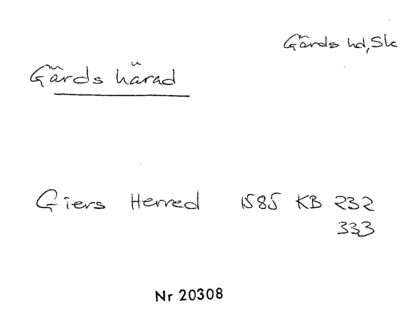 Gärds hd, Sk
Gärds härad
Giers Herred 1585 KB 232
333
Nr 20308